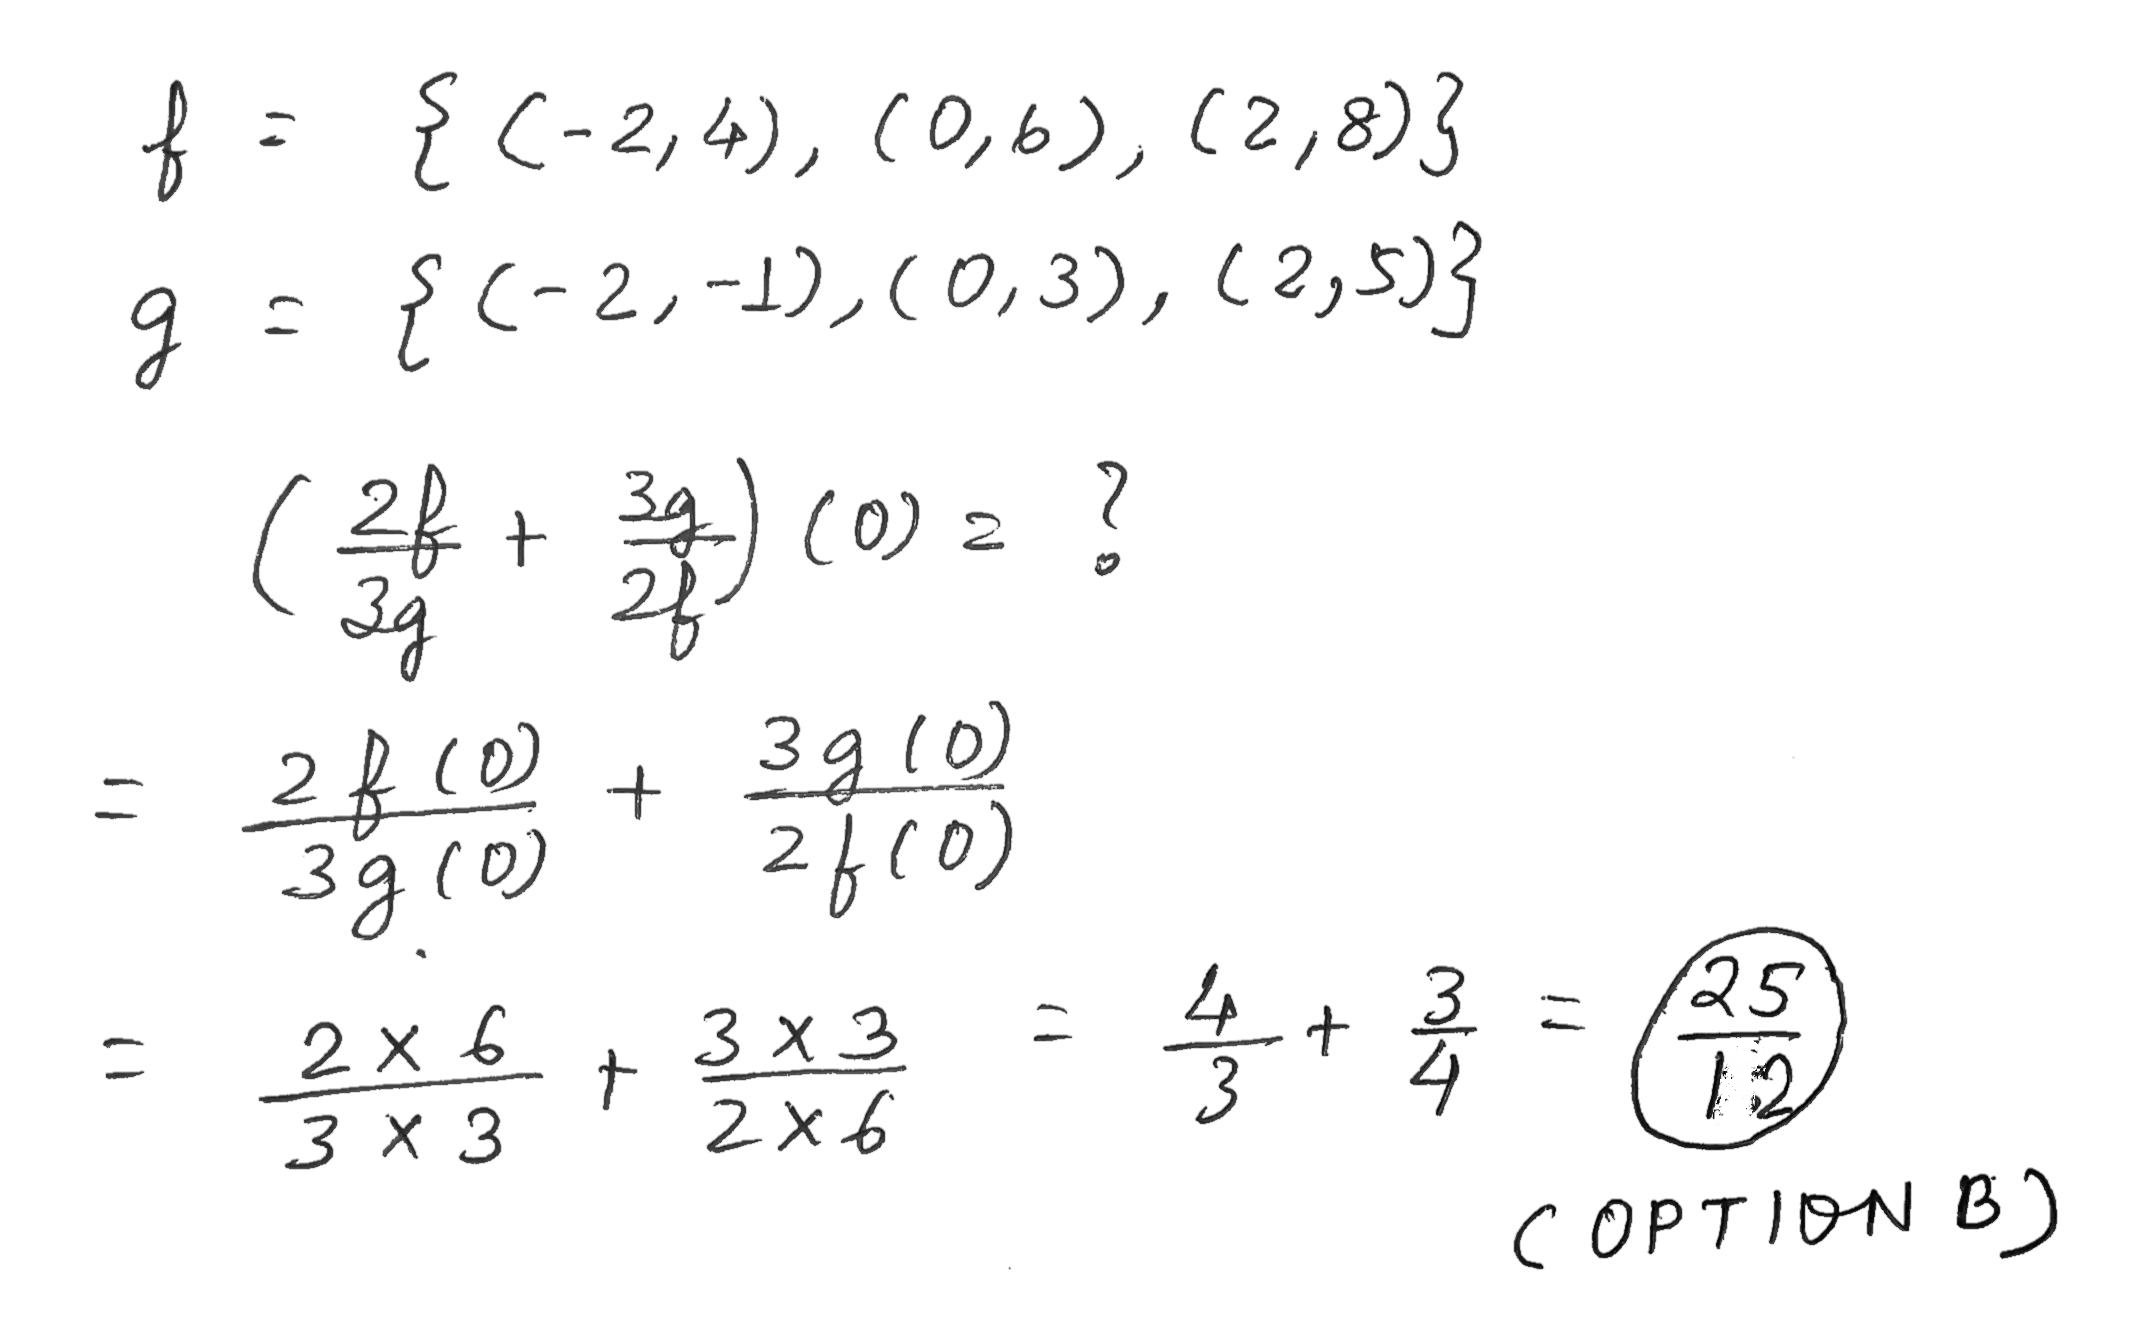 f = { (-2,4), (0,6), (2,8)}
g = { (-2,-1), (0,3), (2,5)}
(2f/3g + 3g/2f) (0) = ?
= 2f(0)/3g(0) + 3g(0)/2f(0)
= 2×6/3×3 + 3×3/2×6 = 4/3 + 3/4 = 25/12
(OPTION B)